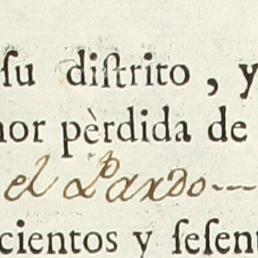 ſu diſtrito, y
nor pèrdida de
el Pardo---
cientos y ſeſent